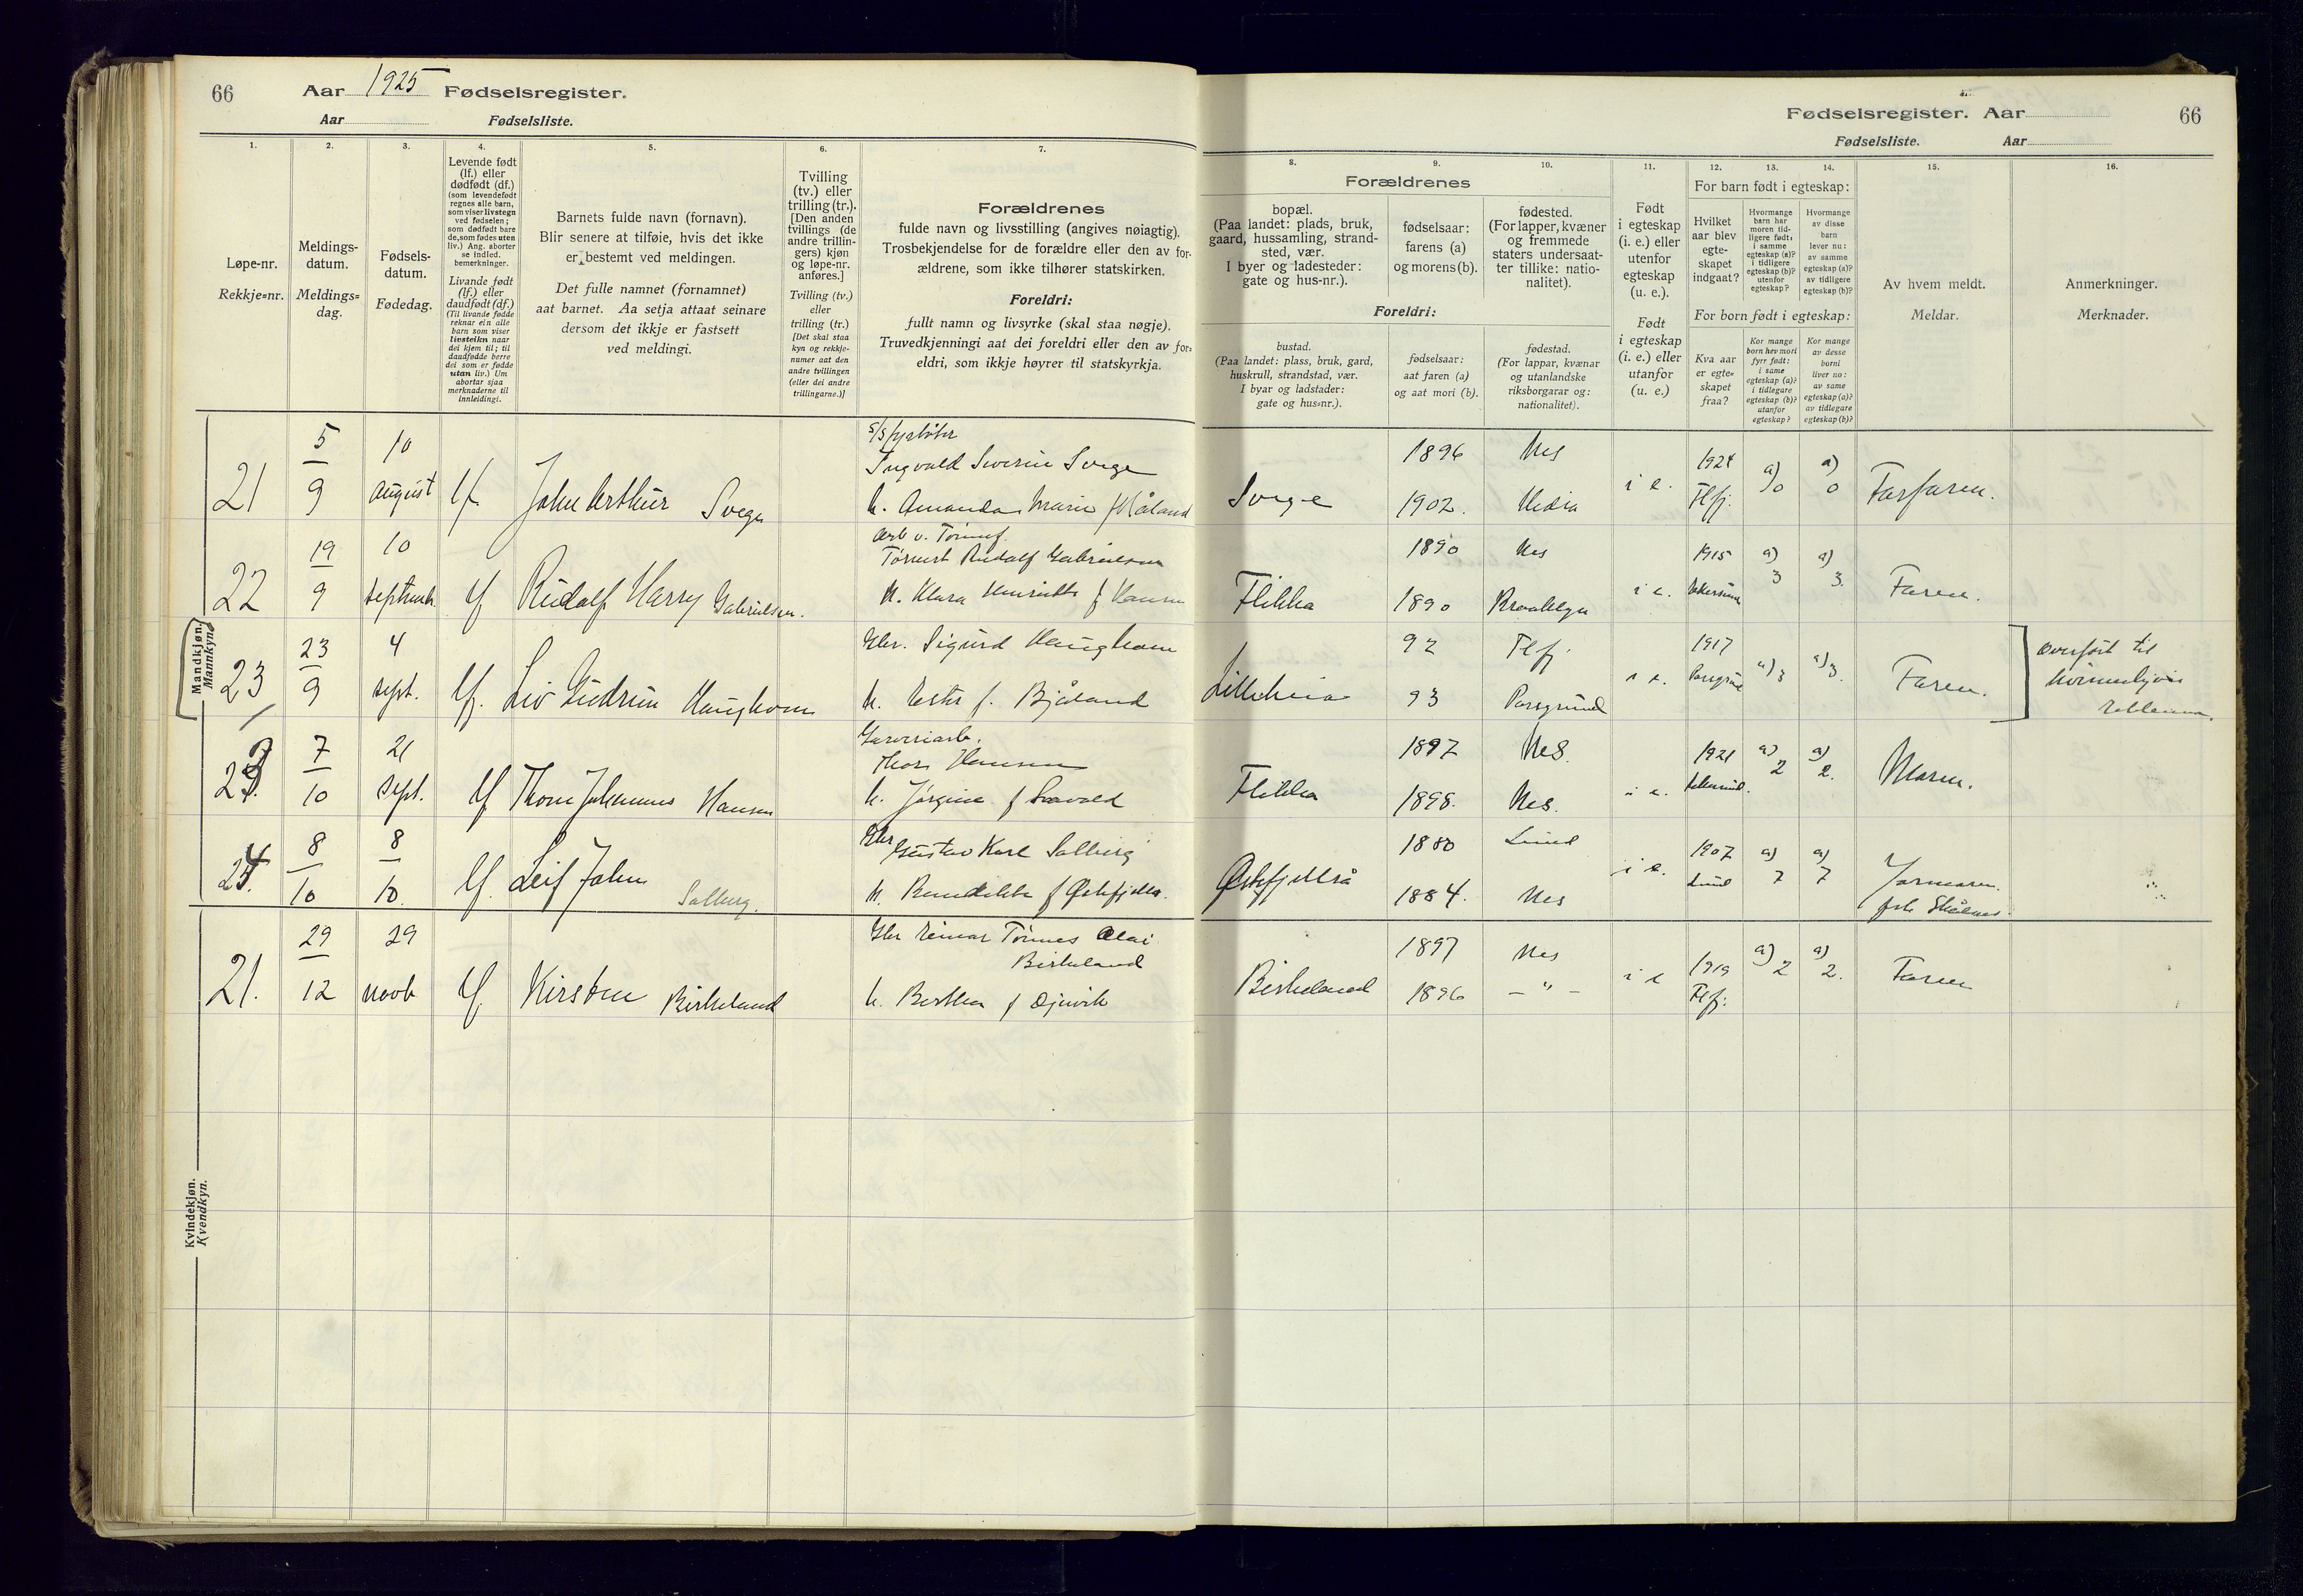 66
Aar 1925 Fødselsregister.
Aar Fødselsliste.
1.
2.
3.
4.
5.
6.
7.
Løpe-nr.
Rekkje-nr.
Meldings-
datum.
Meldings-
dag.
Fødsels-
datum.
Fødedag.
Levende født
(lf.) eller
dødfødt (df.)
(som levendefødt
regnes alle barn,
som viser livstegn
ved fødselen;
som dødfødt bare
de, som fødes uten
liv.) Ang. aborter
se indled.
bemerkninger.
Livande født
(lf.) eller
daudfødt (df.)
(Til livande fødde
reknar ein alle
barn som viser
livsteikn naar
dei kjem til; til
daudfødde berre
dei som er fødde
utan liv.) Um
abortar sjaa
merknaderne til
innleidingi.
Barnets fulde navn (fornavn).
Blir senere at tilføie, hvis det ikke
er bestemt ved meldingen.
Det fulle namnet (fornamnet)
aat barnet. Aa setja attaat seinare
dersom det ikkje er fastsett
ved meldingi.
Tvilling
(tv.) eller
trilling (tr.).
[Den anden
tvillings (de
andre trillin-
gers) kjøn
og løpe-nr.
anføres.]
Tvilling (tv.)
eller
trilling (tr.)
[Det skal staa
kyn og rekkje-
numer aat den
andre tvillingen
(eller dei andre
trillingarne.)]
Forældrenes
fulde navn og livsstilling (angives nøiagtig).
Trosbekjendelse for de forældre eller den av for-
ældrene, som ikke tilhører statskirken.
Foreldri:
fullt namn og livsyrke (skal staa nøgje).
Truvedkjenningi aat dei foreldri eller den av for-
eldri, som ikkje høyrer til statskyrkja.
Mandkjøn.
Mannkyn.
21
5
9
10
August
lf.
John Arthur Svege
s/s fyrbøter
Ingvald Severin Svege
h. Amanda Marie f Håland
22
19
9
10
Septemb.
lf
Rudolf Harry Gabrielsen.
Arb v.
Rudolf Gabrielsen
h. Klara Henriette f Hansen
23
23
9
4
sept.
lf.
Liv Gudrun Haughom
Gbr. Sigurd Haughom
h. Ester f. Bjåland
23.
7
10
21
Sept.
lf
Thom Johannes Hansen
Garveriarb.
Hansen
h. Jørgine f
24.
8
10
8
10.
lf.
Leif John Salberg.
Gbr
Gustav Karl Salberg
h. Bendikte f Eskefjellå.
Kvindekjøn.
Kvendkyn.
21.
29
12
29
Novb
lf
Kirsten Birkeland
Gbr Reinar Tønnes Olai
Birkeland
h. Berthea f Øjevik
Fødselsregister. Aar
66
Fødselsliste. Aar
8.
9.
10.
11.
12.
13.
14.
15.
16.
Forældrenes
bopæl.
(Paa landet: plads, bruk,
gaard, hussamling, strand-
sted, vær.
I byer og ladesteder:
gate og hus-nr.).
fødselsaar:
farens (a)
og morens (b).
fødested.
(For lapper, kvæner
og fremmede
staters undersaat-
ter tillike: natio-
nalitet).
Foreldri:
bustad.
(Paa landet: plass, bruk, gard,
huskrull, strandstad, vær.
I byar og ladstader:
gate og hus-nr.).
fødselsaar:
aat faren (a)
og aat mori (b).
fødestad.
(For lappar, kvænar
og utanlandske
riksborgarar og:
nationalitet).
Født
i egteskap
(i. e.) eller
utenfor
egteskap
(u. e.).
Født
i egteskap
(i. e.) eller
utanfor
(u. e.)
For barn født i egteskap:
Hvilket
aar blev
egte-
skapet
indgaat?
Hvormange
barn har
moren tid-
ligere født:
i samme
egteskap (a)?
i tidligere
egteskap (b)?
utenfor
egteskap?
Hvormange
av disse
barn
lever nu:
av samme
egteskap (a)?
av tidligere
egteskap (b)?
For born født i egteskap:
Kva aar
er egte-
skapet
fraa?
Kor mange
born hev mori
fyrr født:
i same
egteskap (a)?
i tidlegare
egteskap (b)?
utanfor
egteskap?
Kor mange
av desse
borni
liver no:
av same
egteskap (a)?
av tidlegare
egteskap (b)?
Av hvem meldt.
Meldar.
Anmerkninger.
Merknader.
Svege
1896
1902.
Nes
Hidra
i e.
1924
Flfj.
a) 0
a) 0
Farfaren.
Flikka
1890
1890
Nes
i e.
1915
a) 3
a) 3.
Faren.
Lilleheia
92
93
Flfj.
Porsgrund
i e.
1917
Porsgrund
a) 3
a) 3.
Faren.
Overført til
kvinnekjøn
Flikka
1897
1898.
Nes.
Nes.
i e.
1921
a) 2
a) 2.
Moren.
Eskefjellå
1880
1884.
Lund
Nes
i e.
1907
Lund
a) 7
a) 7
Jormoren.
Birkeland
1897
1896
Nes
— " —
i e
1919
Flfj.
a) 2
a) 2.
Faren